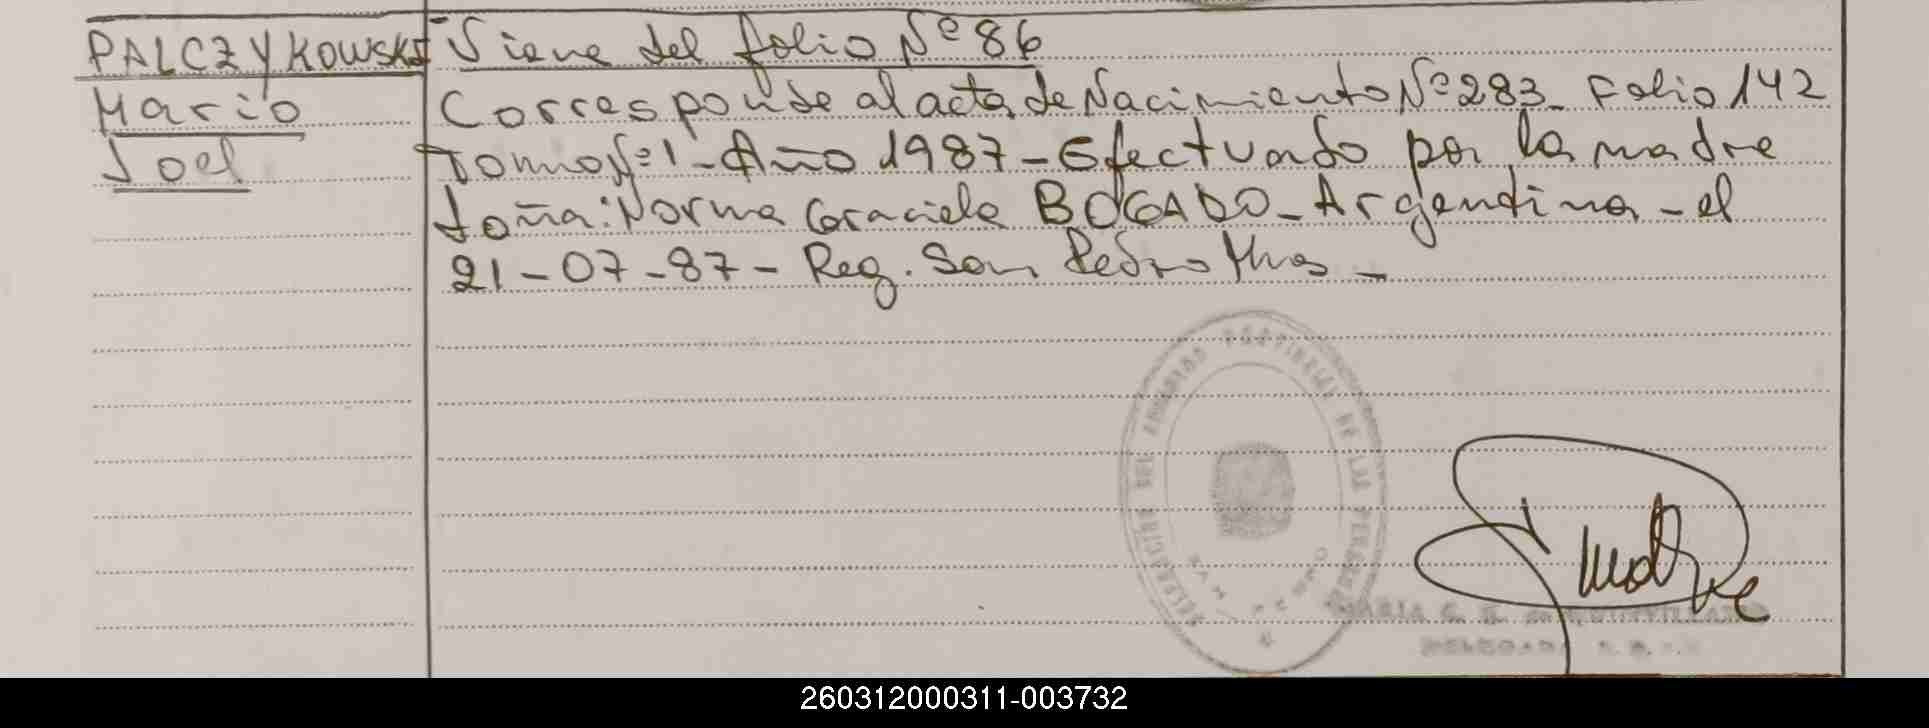 PALCZYKOWSKI
Mario
Joel
Viene del folio Nº 86
Corresponde al acta de Nacimiento Nº 283 - Folio 142
tomo Nº 1 - Año 1987 - Efectuado por la madre
doña: Norma Graciela BOGADO - Argentina - el
21 - 07 - 87 - Reg. San Pedro Mnes -
PROVINCIAL DE LAS PERSONAS
SAN PEDRO
MARIA
DELEGADA
260312000311-003732